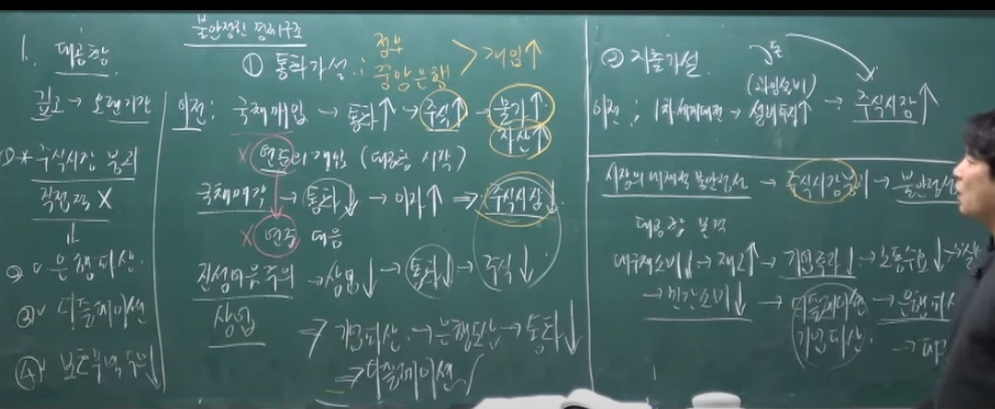 1. 대공황
깊고 → 오랜기간
① * 주식시장 붕괴
직접적 X
② ✓ 은행파산.
③ ✓ 디플레이션
④ ✓ 보호무역주의↓
불안정한 경제구조
① 통화가설 : 정부
중앙은행 > 개입↑
이전: 국채매입 → 통화↑ → 주식↑ → 물가↑
자산↑
X 연준의 개입 (대공황 시작)
국채매각 → 통화↓ → 이자↑ ⇒ 주식시장↓
X 연준 대응
진성어음주의 → 상업↓ → 통화↓ → 주식↓
상업
⇒ 기업파산 → 은행도산 → 통화↓
⇒ 디플레이션
② 지출가설.
돈
(과잉소비)
이전 : 1차세계대전 → 설비투자↑ → 주식시장↑
시장의 내재적 불안정성 → 주식시장 → 불안정성
대공황 본격
내구재소비↓ → 재고↑ → 기업 ↓ → 노동수요↓ →
→ 민간소비↓ → 디플레이션 → 은행파산
기업파산.